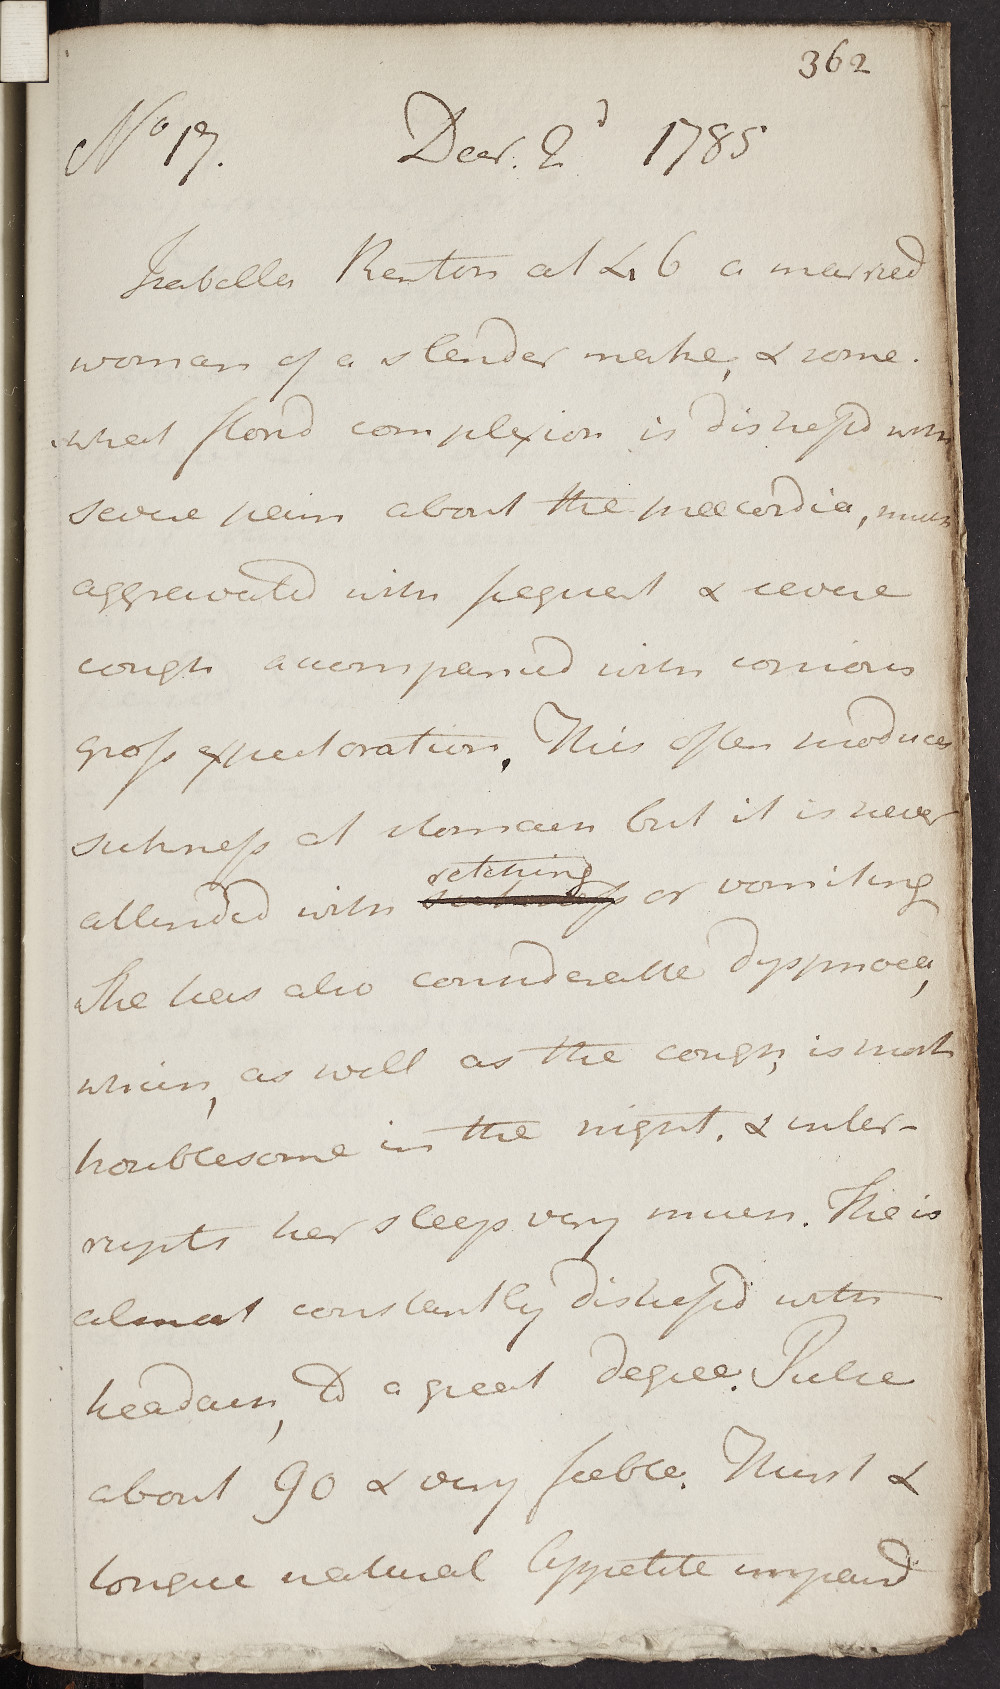 362
No 17. Decr. 2d 1785
Isabella Renton æt 46 a married
woman of a slender make, & some-
what florid complexion is distressd with
severe pain about the præcordia, much
aggravated with frequent & severe
cough accompanied with copious
gross expectoration. This often produces
sickness at stomach but it is never
attended with retching or vomiting
She has also considerable dyspnoea,
which, as well as the cough, is most
troublesome in the night, & inter-
rupts her sleep very much. She is
almost constantly distressd with
headach, to a great degree. Pulse
about 90 & very feeble. Thirst &
tongue natural Appetite impaird